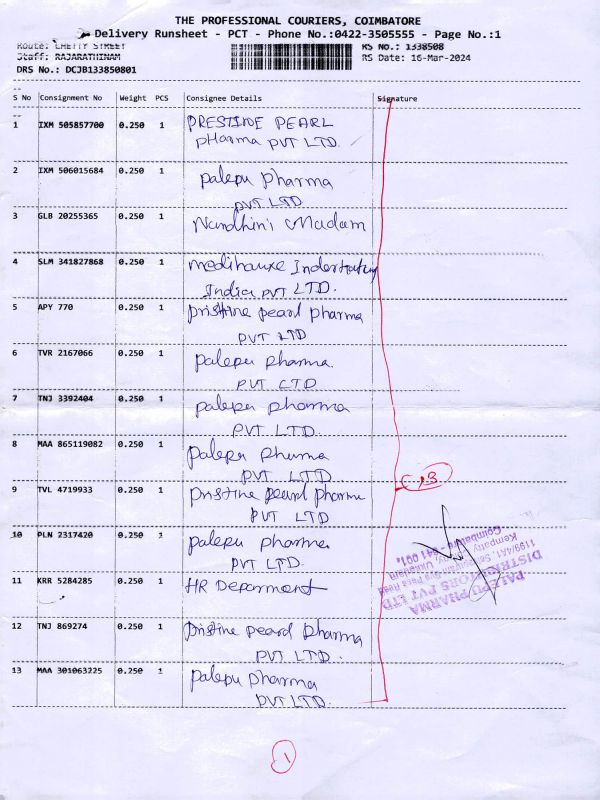 THE PROFESSIONAL COURIERS, COIMBATORE
Delivery Runsheet - PCT - Phone No.:0422-3505555 - Page No.:1
Route: CHETTY STREET
RS No.: 1338508
Staff: RAJARATHINAM
RS Date: 16-Mar-2024
DRS No.: DCJB133850801
S No Consignment No Weight PCS Consignee Details Signature
1 IXM 505857700 0.250 1 PRESTINE PEARL
pHarma PVT LTD.
2 IXM 506015684 0.250 1 palepu pharma
PVT LTD
3 GLB 20255365 0.250 1 Nandhini Madam
4 SLM 341827868 0.250 1
India PVT LTD.
5 APY 770 0.250 1 pristine pearl pharma
PVT LTD
6 TVR 2167066 0.250 1 palepu pharma.
PVT LTD
7 TNJ 3392404 0.250 1 palepu pharma
PVT LTD.
8 MAA 865119082 0.250 1 palepu pharma
PVT LTD
9 TVL 4719933 0.250 1 pristine pearl pharma
PVT LTD
13
10 PLN 2317420 0.250 1 palepu pharma
PVT LTD.
11 KRR 5284285 0.250 1 HR Deparment
PALEPU PHARMA
DISTRIBUTORS PVT LTD
Coimbatore - 641 001.
12 TNJ 869274 0.250 1 pristine pearl pharma
PVT LTD.
13 MAA 301063225 0.250 1 palepu pharma
PVT LTD.
1